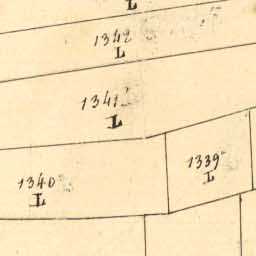 L
1342
L
1341
L
1339
L
1340
L